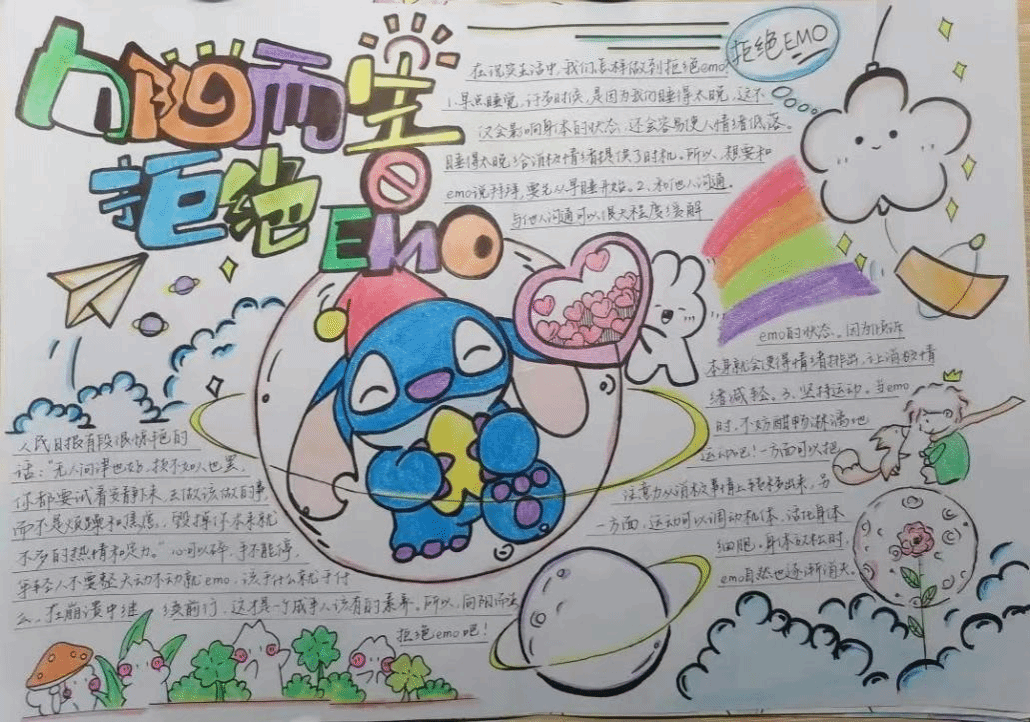 向阳而生
拒绝
EMO
拒绝EMO
在现实生活中,我们怎样做到拒绝emo?
1.早点睡觉,许多时候,是因为我们睡得太晚,这不
仅会影响身体的状态,还会容易使人情绪低落。
睡得太晚给消极情绪提供了时机。所以,想要和
emo说拜拜,要先从早睡开始。2、和他人沟通。
与他人沟通可以很大程度缓解
emo的状态。因为倾诉
本身就会使得情绪排出,让消极情
绪减轻。3、坚持运动。当emo
时,不妨酣畅淋漓地
运动吧!一方面可以把
注意力从消极事情上转移出来,另
一方面,运动可以调动机体,活化身体
细胞,身体放松时,
emo自然也逐渐消失。
人民日报有段很惊艳的
话:“无人问津也好,技不如人也罢,
你都要试着安静下来,去做该做的事,
而不是烦躁和焦虑,毁掉你本来就
不多的热情和定力。”心可以碎,手不能停,
年轻人不要整天动不动就emo,该干什么就干什
么,在崩溃中继 续前行,这才是一个成年人该有的素养。所以,向阳而生
拒绝emo吧!